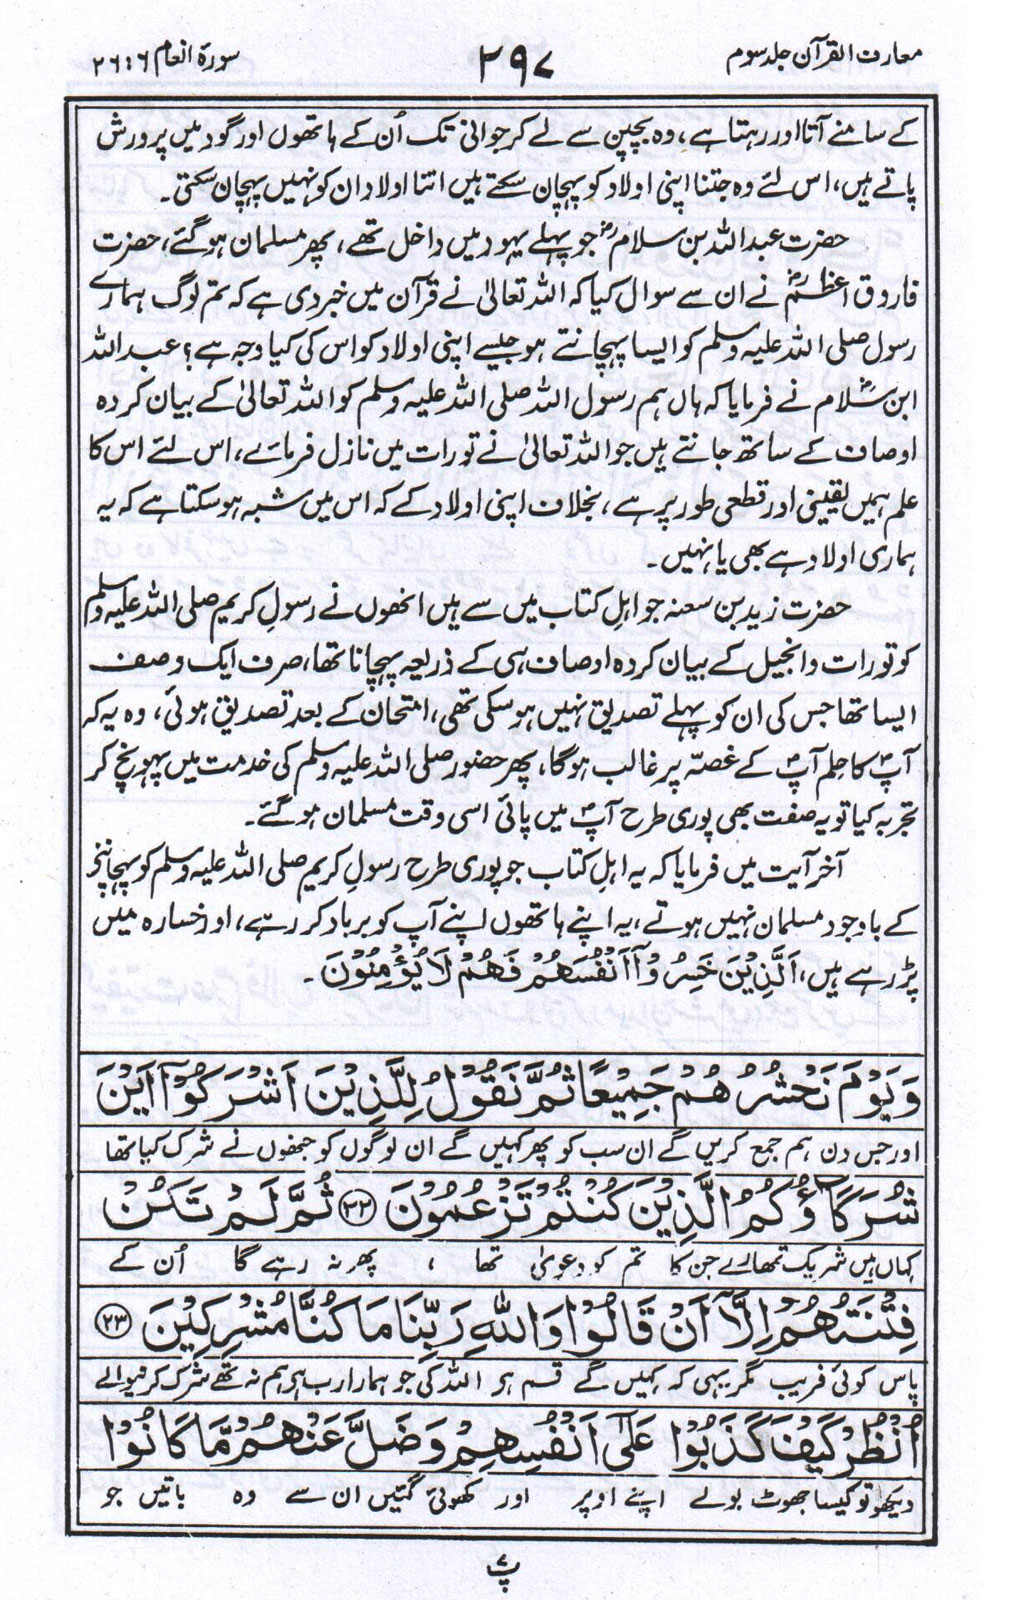 معارف القرآن جلد سوم
۲۹۷
سورۃ انعام ۶ : ۲۶
کے سامنے آتا اور رہتا ہے، وہ بچپن سے لے کر جوانی تک اُن کے ہاتھوں اور گود میں پرورش
پاتے ہیں، اس لئے وہ جتنا اپنی اولاد کو پہچان سکتے ہیں اتنا اولاد ان کو نہیں پہچان سکتی۔
حضرت عبد اللہ بن سلام رضؓ جو پہلے یہود میں داخل تھے، پھر مسلمان ہوگئے، حضرت
فاروق اعظمؓ نے ان سے سوال کیا کہ اللہ تعالیٰ نے قرآن میں خبر دی ہے کہ تم لوگ ہمارے
رسول صلی اللہ علیہ وسلم کو ایسا پہچانتے ہو جیسے اپنی اولاد کو اس کی کیا وجہ ہے؟ عبد اللہ
ابن سلامؓ نے فرمایا کہ ہاں ہم رسول اللہ صلی اللہ علیہ وسلم کو اللہ تعالیٰ کے بیان کردہ
اوصاف کے ساتھ جانتے ہیں جو اللہ تعالیٰ نے تورات میں نازل فرمائے، اس لئے اس کا
علم ہمیں یقینی اور قطعی طور پر ہے، بخلاف اپنی اولاد کے کہ اس میں شبہ ہوسکتا ہے کہ یہ
ہماری اولاد ہے بھی یا نہیں۔
حضرت زید بن سعنہ جو اہلِ کتاب میں سے ہیں انھوں نے رسولِ کریم صلی اللہ علیہ وسلم
کو تورات و انجیل کے بیان کردہ اوصاف ہی کے ذریعہ پہچانا تھا، صرف ایک وصف
ایسا تھا جس کی ان کو پہلے تصدیق نہیں ہوسکی تھی، امتحان کے بعد تصدیق ہوئی، وہ یہ کہ
آپؐ کا حلم آپؐ کے غصّہ پر غالب ہوگا، پھر حضور صلی اللہ علیہ وسلم کی خدمت میں پہونچ کر
تجربہ کیا تو یہ صفت بھی پوری طرح آپؐ میں پائی اسی وقت مسلمان ہو گئے۔
آخر آیت میں فرمایا کہ یہ اہلِ کتاب جو پوری طرح رسولِ کریم صلی اللہ علیہ وسلم کو پہچاننے
کے باوجود مسلمان نہیں ہوتے، یہ اپنے ہاتھوں اپنے آپ کو برباد کر رہے، اور خسارہ میں
پڑ رہے ہیں، اَلَّذِیْنَ خَسِرُوْٓا اَنْفُسَھُمْ فَھُمْ لَا یُؤْمِنُوْنَ ۔
وَیَوْمَ نَحْشُرُھُمْ جَمِیْعًا ثُمَّ نَقُوْلُ لِلَّذِیْنَ اَشْرَکُوْٓا اَیْنَ
اور جس دن ہم جمع کریں گے ان سب کو پھر کہیں گے ان لوگوں کو جنھوں نے شرک کیا تھا
شُرَکَآؤُکُمُ الَّذِیْنَ کُنْتُمْ تَزْعُمُوْنَ ﴿۲۲﴾ ثُمَّ لَمْ تَکُنْ
کہاں ہیں شریک تمھارے جن کا تم کو دعویٰ تھا ، پھر نہ رہے گا اُن کے
فِتْنَتُھُمْ اِلَّآ اَنْ قَالُوْا وَاللّٰہِ رَبِّنَا مَا کُنَّا مُشْرِکِیْنَ ﴿۲۳﴾
پاس کوئی فریب مگر یہی کہ کہیں گے قسم ہے اللہ کی جو ہمارا رب ہے ہم نہ تھے شرک کرنیوالے
اُنْظُرْ کَیْفَ کَذَبُوْا عَلٰٓی اَنْفُسِھِمْ وَضَلَّ عَنْھُمْ مَّا کَانُوْا
دیکھو تو کیسا جھوٹ بولے اپنے اوپر اور کھوئی گئیں ان سے وہ باتیں جو
پ۷